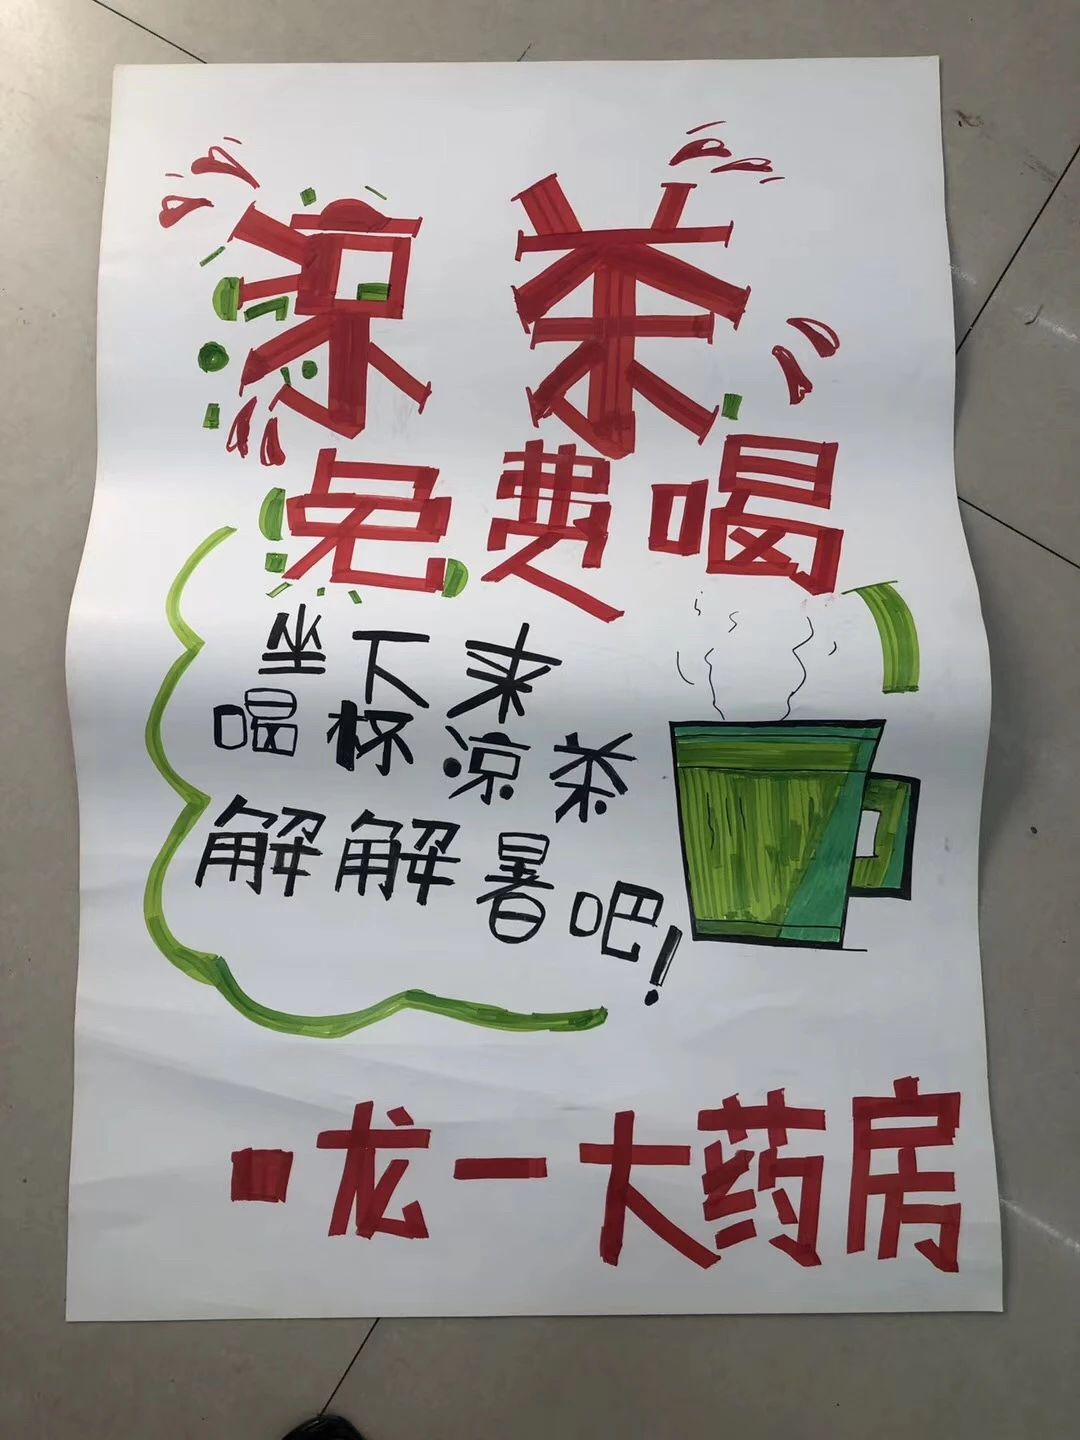 凉茶
免费喝
坐下来
喝杯凉茶
解解暑吧!
口龙一大药房